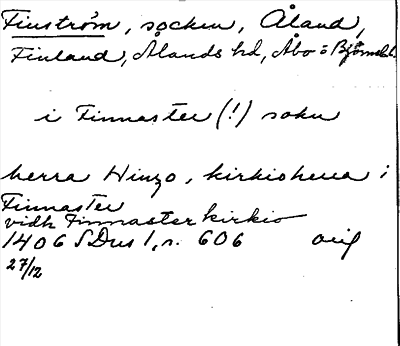 Finström, socken, Åland,
Finland, Ålands hd, Åbo o Björneb.
i Finnaster (!) sokn
herra Hinzo, kirkioherra i
Finnaster
vidh Finnaster kirkio
1406 SDns 1, n. 606 orig
27/12